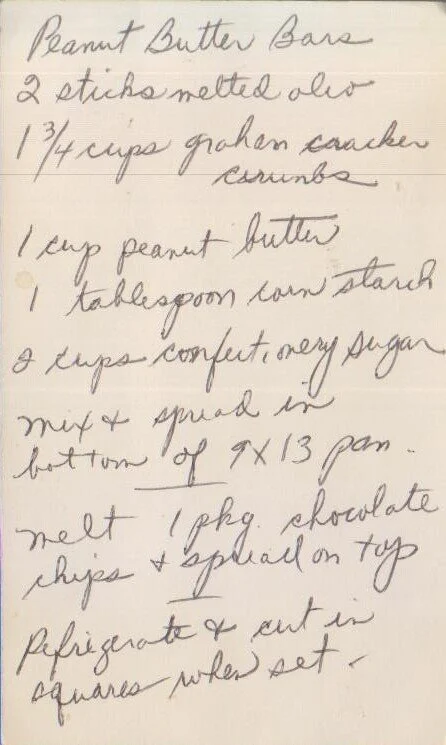 Peanut Butter Bars
2 sticks melted oleo
1 3/4 cups graham cracker
crumbs
1 cup peanut butter
1 tablespoon corn starch
2 cups confectionery sugar
mix & spread in
bottom of 9X13 pan.
melt 1 pkg. chocolate
chips & spread on top
Refrigerate & cut in
squares when set.